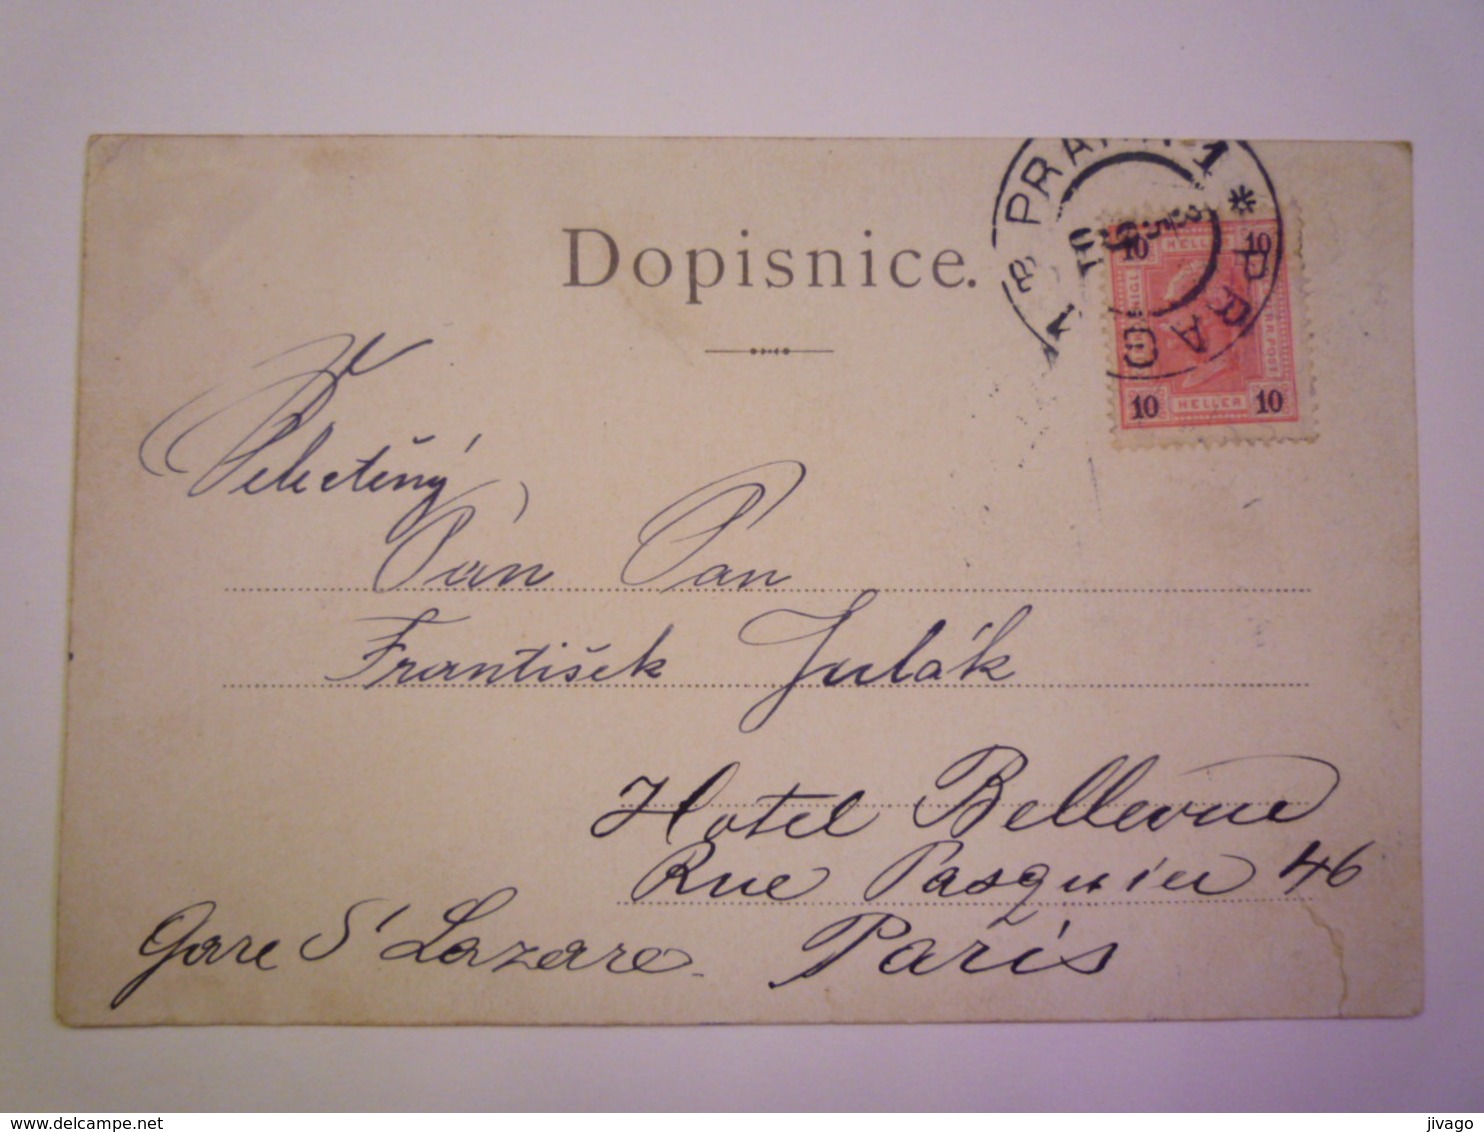 Dopisnice.
PRAG
1
10 HELLER 10
10 HELLER 10
Velectěný
Pán Pan
František Julák
Hotel Bellevue
Rue Pasquier 46
Gare St Lazare. Paris
delcampe.net
jivago